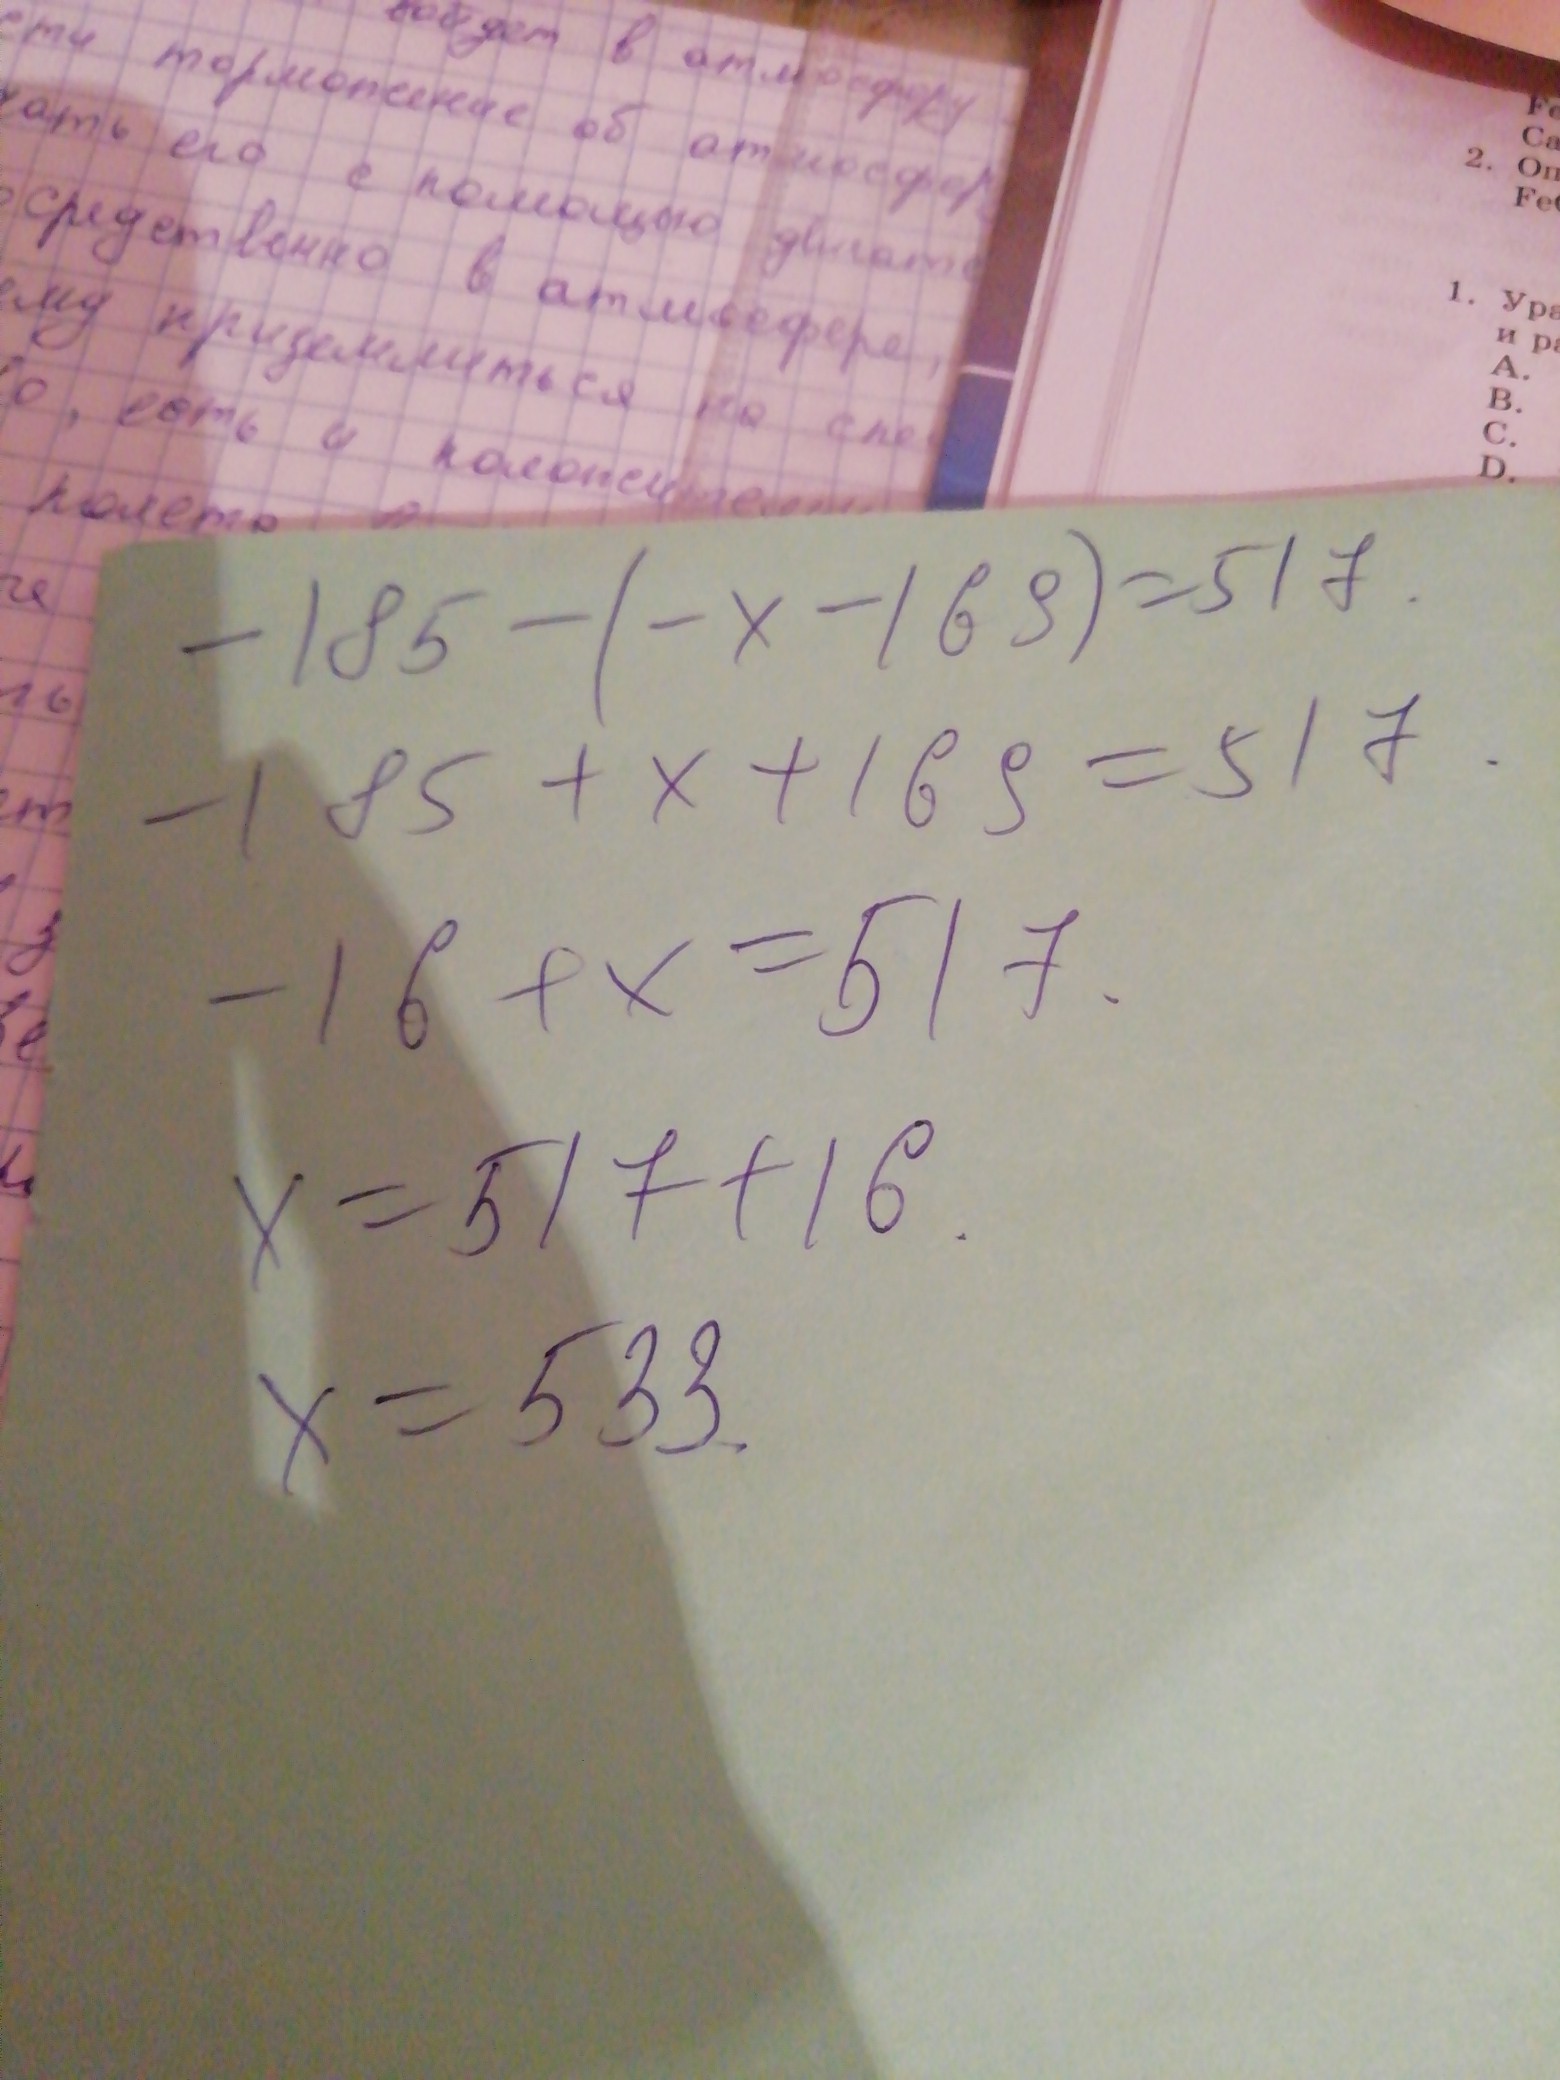 войдет в атмосферу
торможение об атмосфер
его с помощью двигате
в атмосфере,
приземлиться на спе
есть и
полета
Fe
Ca
2. Оп
Fe
1. Ура
и ра
A.
B.
C.
D.
-185-(-x-169)=517.
-185+x+169=517.
-16+x=517.
x=517+16.
x=533.